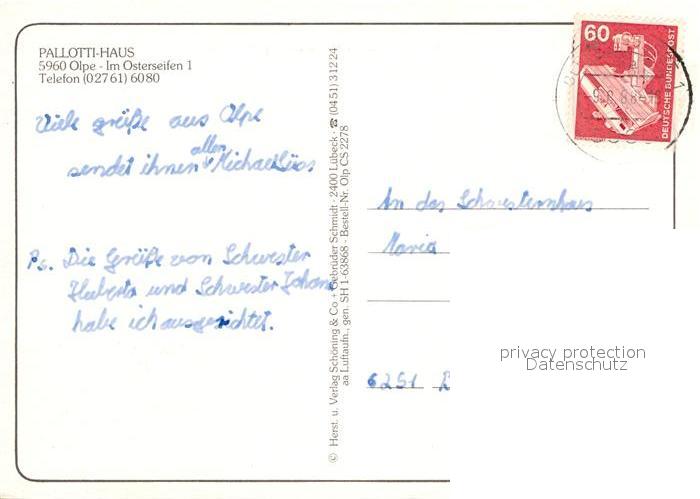 PALLOTTI-HAUS
5960 Olpe - Im Osterseifen 1
Telefon (02761) 6080
Viele grüße aus Olpe
allen
sendet ihnen Michael
Ps. Die Grüße von Schwester
Huberta und Schwester Johan
habe ich ausgerichtet.
© Herst. u. Verlag Schöning & Co + Gebrüder Schmidt · 2400 Lübeck · ☎ (0451) 31224
aa Luftaufn., gen. SH 1-63868 - Bestell-Nr. Olp CS 2278
60
DEUTSCHE BUNDESPOST
An das Schwesternhaus
Maria
6251
privacy protection
Datenschutz